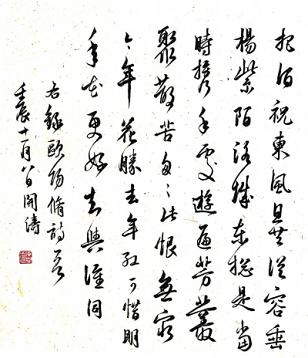 把酒祝東風且共從容垂
楊紫陌洛城東總是當
時攜手處遊遍芳叢
聚散苦匆々此恨無窮
今年花勝去年紅可惜明
年花更好知與誰同
右錄歐陽脩詞
壬辰十月八日開濤